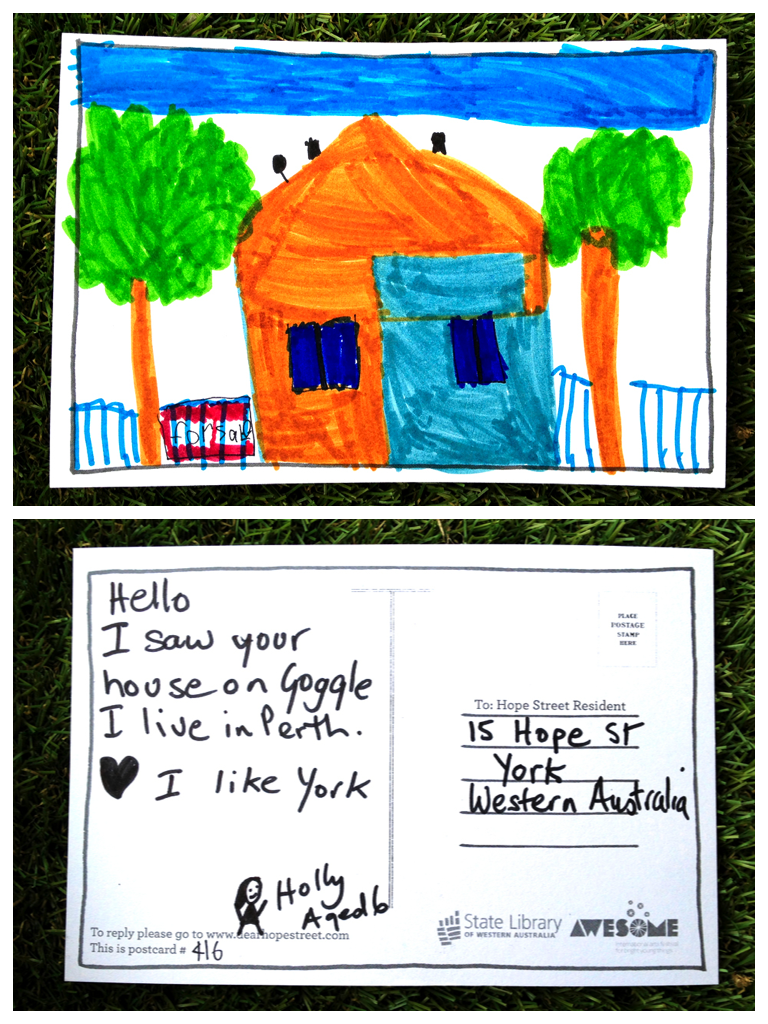 for sale
Hello
I saw your
house on Goggle
I live in Perth.
I like York
Holly
Aged 6
To reply please go to www.dearhopestreet.com
This is postcard # 416
PLACE
POSTAGE
STAMP
HERE
To: Hope Street Resident
15 Hope St
York
Western Australia
State Library
OF WESTERN AUSTRALIA
AWESOME